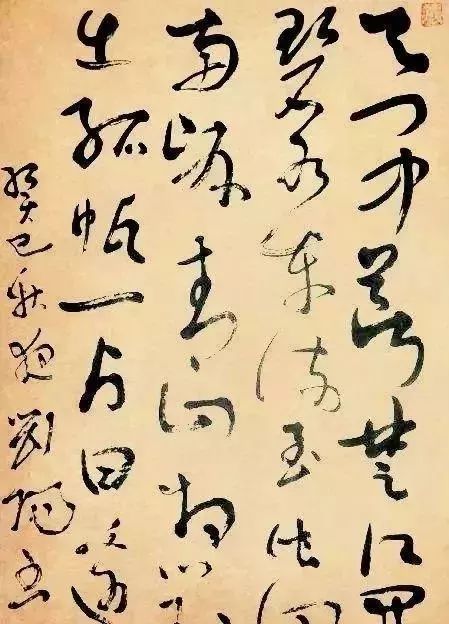 天門中斷楚江開
碧水東流至此回
兩岸青山相對
出孤帆一片日邊
癸巳秋夜劉書